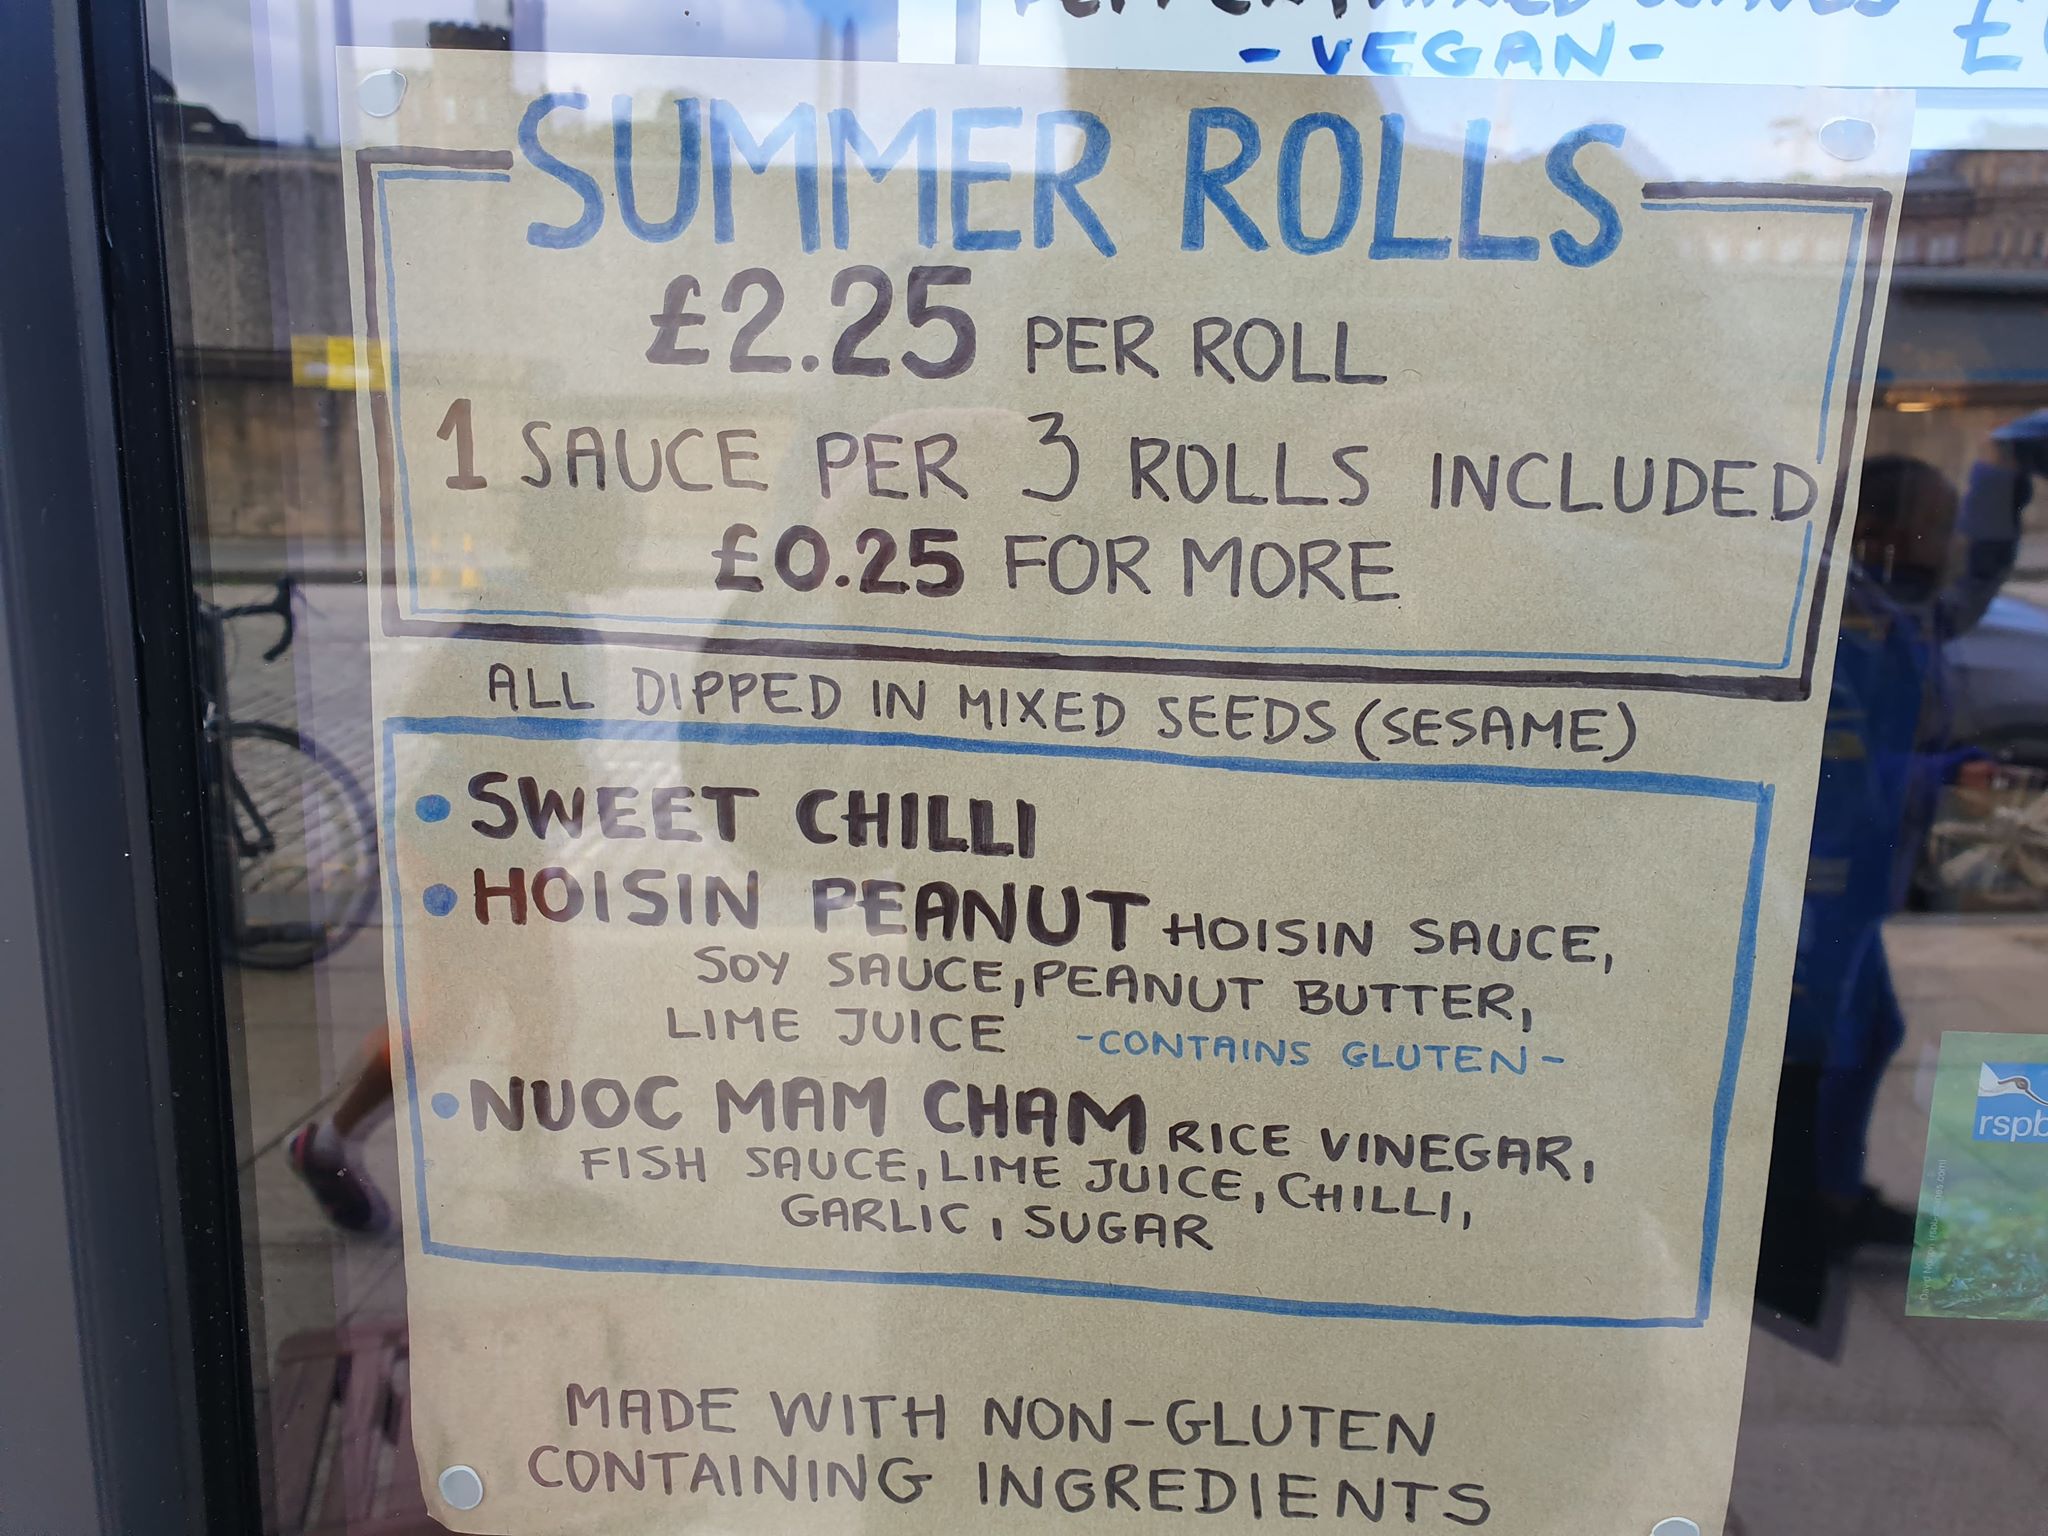 - VEGAN -
SUMMER ROLLS
£2.25 PER ROLL
1 SAUCE PER 3 ROLLS INCLUDED
£0.25 FOR MORE
ALL DIPPED IN MIXED SEEDS (SESAME)
• SWEET CHILLI
• HOISIN PEANUT HOISIN SAUCE,
SOY SAUCE, PEANUT BUTTER,
LIME JUICE -CONTAINS GLUTEN-
• NUOC MAM CHAM RICE VINEGAR,
FISH SAUCE, LIME JUICE, CHILLI,
GARLIC, SUGAR
MADE WITH NON-GLUTEN
CONTAINING INGREDIENTS
rspb